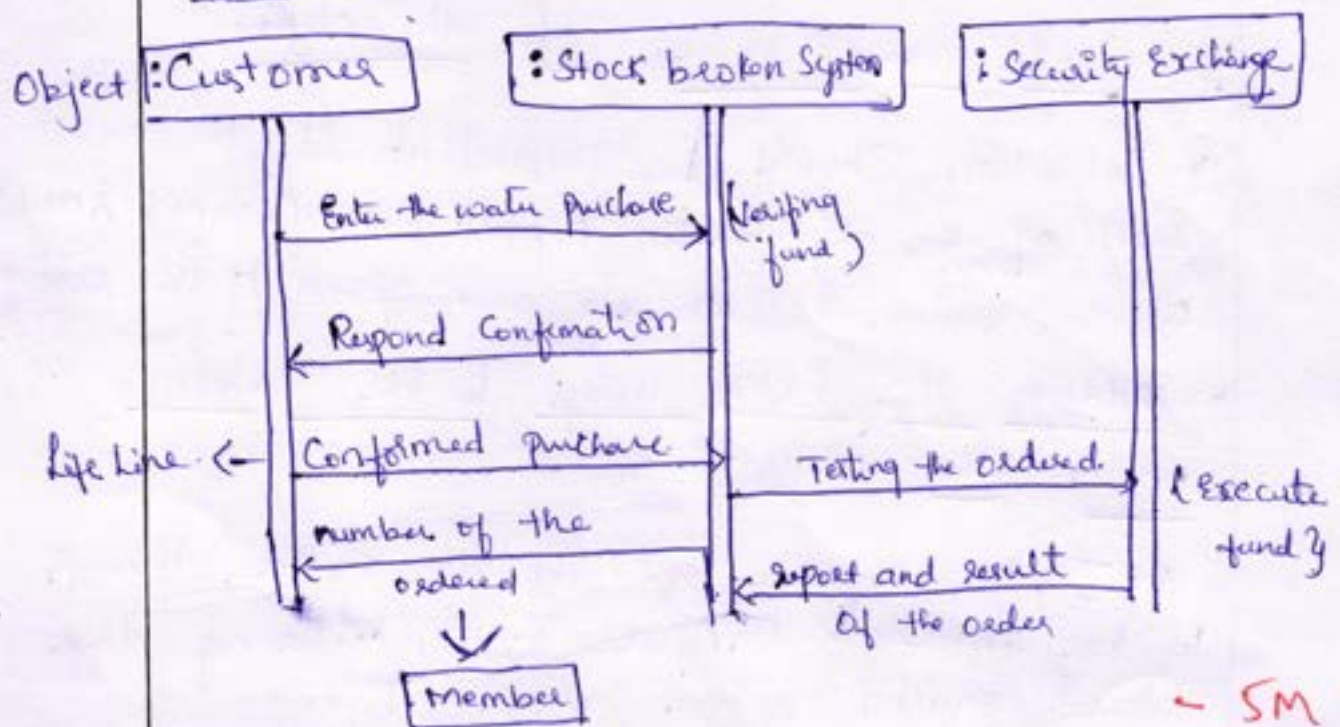 Object
:Customer
:Stock broken System
: Security Exchange
Enter the water purchase
(Verifing
fund)
Respond Confirmation
Life Line
Conformed purchase
Testing the ordered.
{ Execute
fund }
number of the
ordered
report and result
of the order
member
- 5M